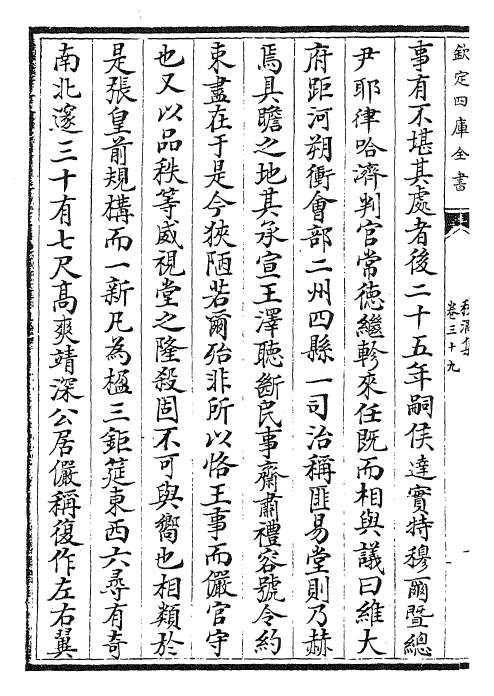 欽定四庫全書
秋澗集
卷三十九
事有不堪其處者後二十五年嗣侯達實特穆爾暨總
尹耶律哈濟判官常徳繼軫來任既而相與議曰維大
府距河朔衝會部二州四縣一司治稱匪易堂則乃赫
焉具瞻之地其承宣王澤聽斷民事齋肅禮容號令約
束盡在于是今狹陋若爾殆非所以恪王事而儼官守
也又以品秩等威視堂之隆殺固不可與嚮也相類於
是張皇前規構而一新凡為楹三鉅筵東西六尋有奇
南北邃三十有七尺髙爽靖深公居儼稱復作左右翼